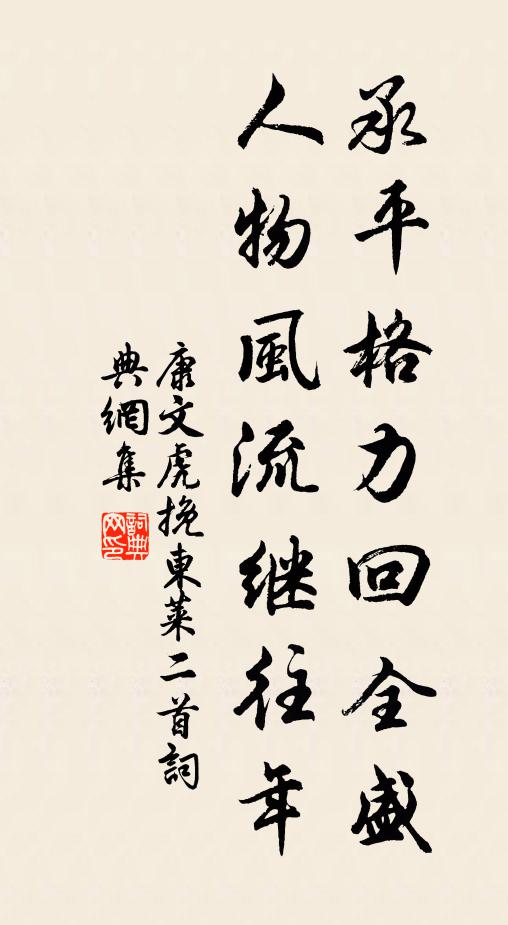 承平格力回全盛
人物風流继往年
康文虎挽東萊二首詞
典網集
詞典
网印